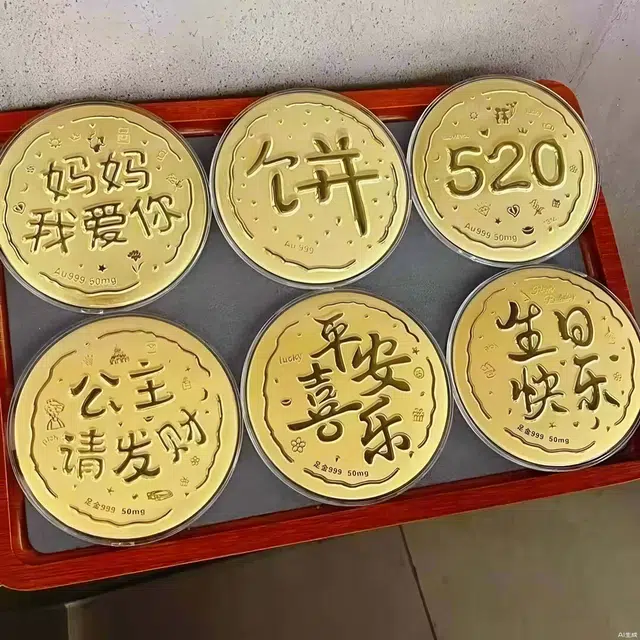 妈妈
我爱你
Au999 50mg
饼
Au 999
520
Au999 50mg
公主
请发财
足金999 50mg
lucky
平安
喜乐
足金999 50mg
生日
快乐
足金999 50mg
AI生成